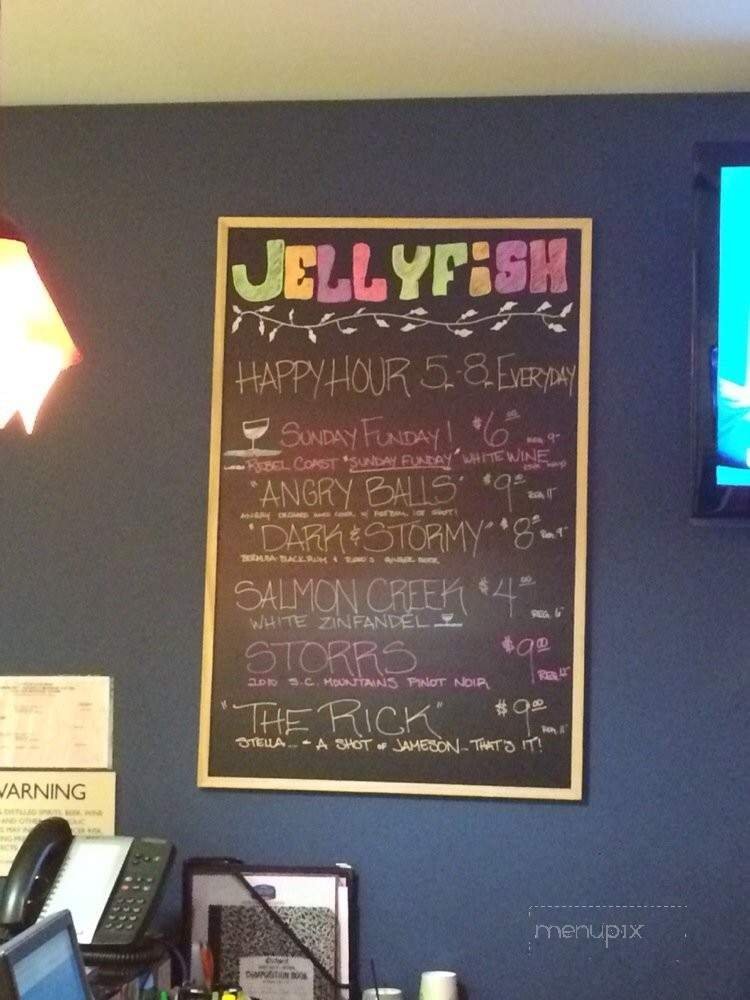 JELLYFISH
HAPPY HOUR 5-8 EVERYDAY
SUNDAY FUNDAY! $6.00 REG 9-
REBEL COAST "SUNDAY FUNDAY" WHITE WINE
"ANGRY BALLS" $9.00 REG 11-
ANGRY ORCHARD HARD CIDER W/ FIREBALL SHOT!
"DARK & STORMY" $8.00 REG 9-
BLACK RUM & GINGER BEER
SALMON CREEK $4.00 REG 6-
WHITE ZINFANDEL
STORRS $9.00 REG 12-
2010 S.C. MOUNTAINS PINOT NOIR
"THE RICK" $9.00 REG 11-
STELLA... & A SHOT OF JAMESON... THAT'S IT!
WARNING
DISTILLED SPIRITS, BEER, WINE
COMPOSITION BOOK
menupix